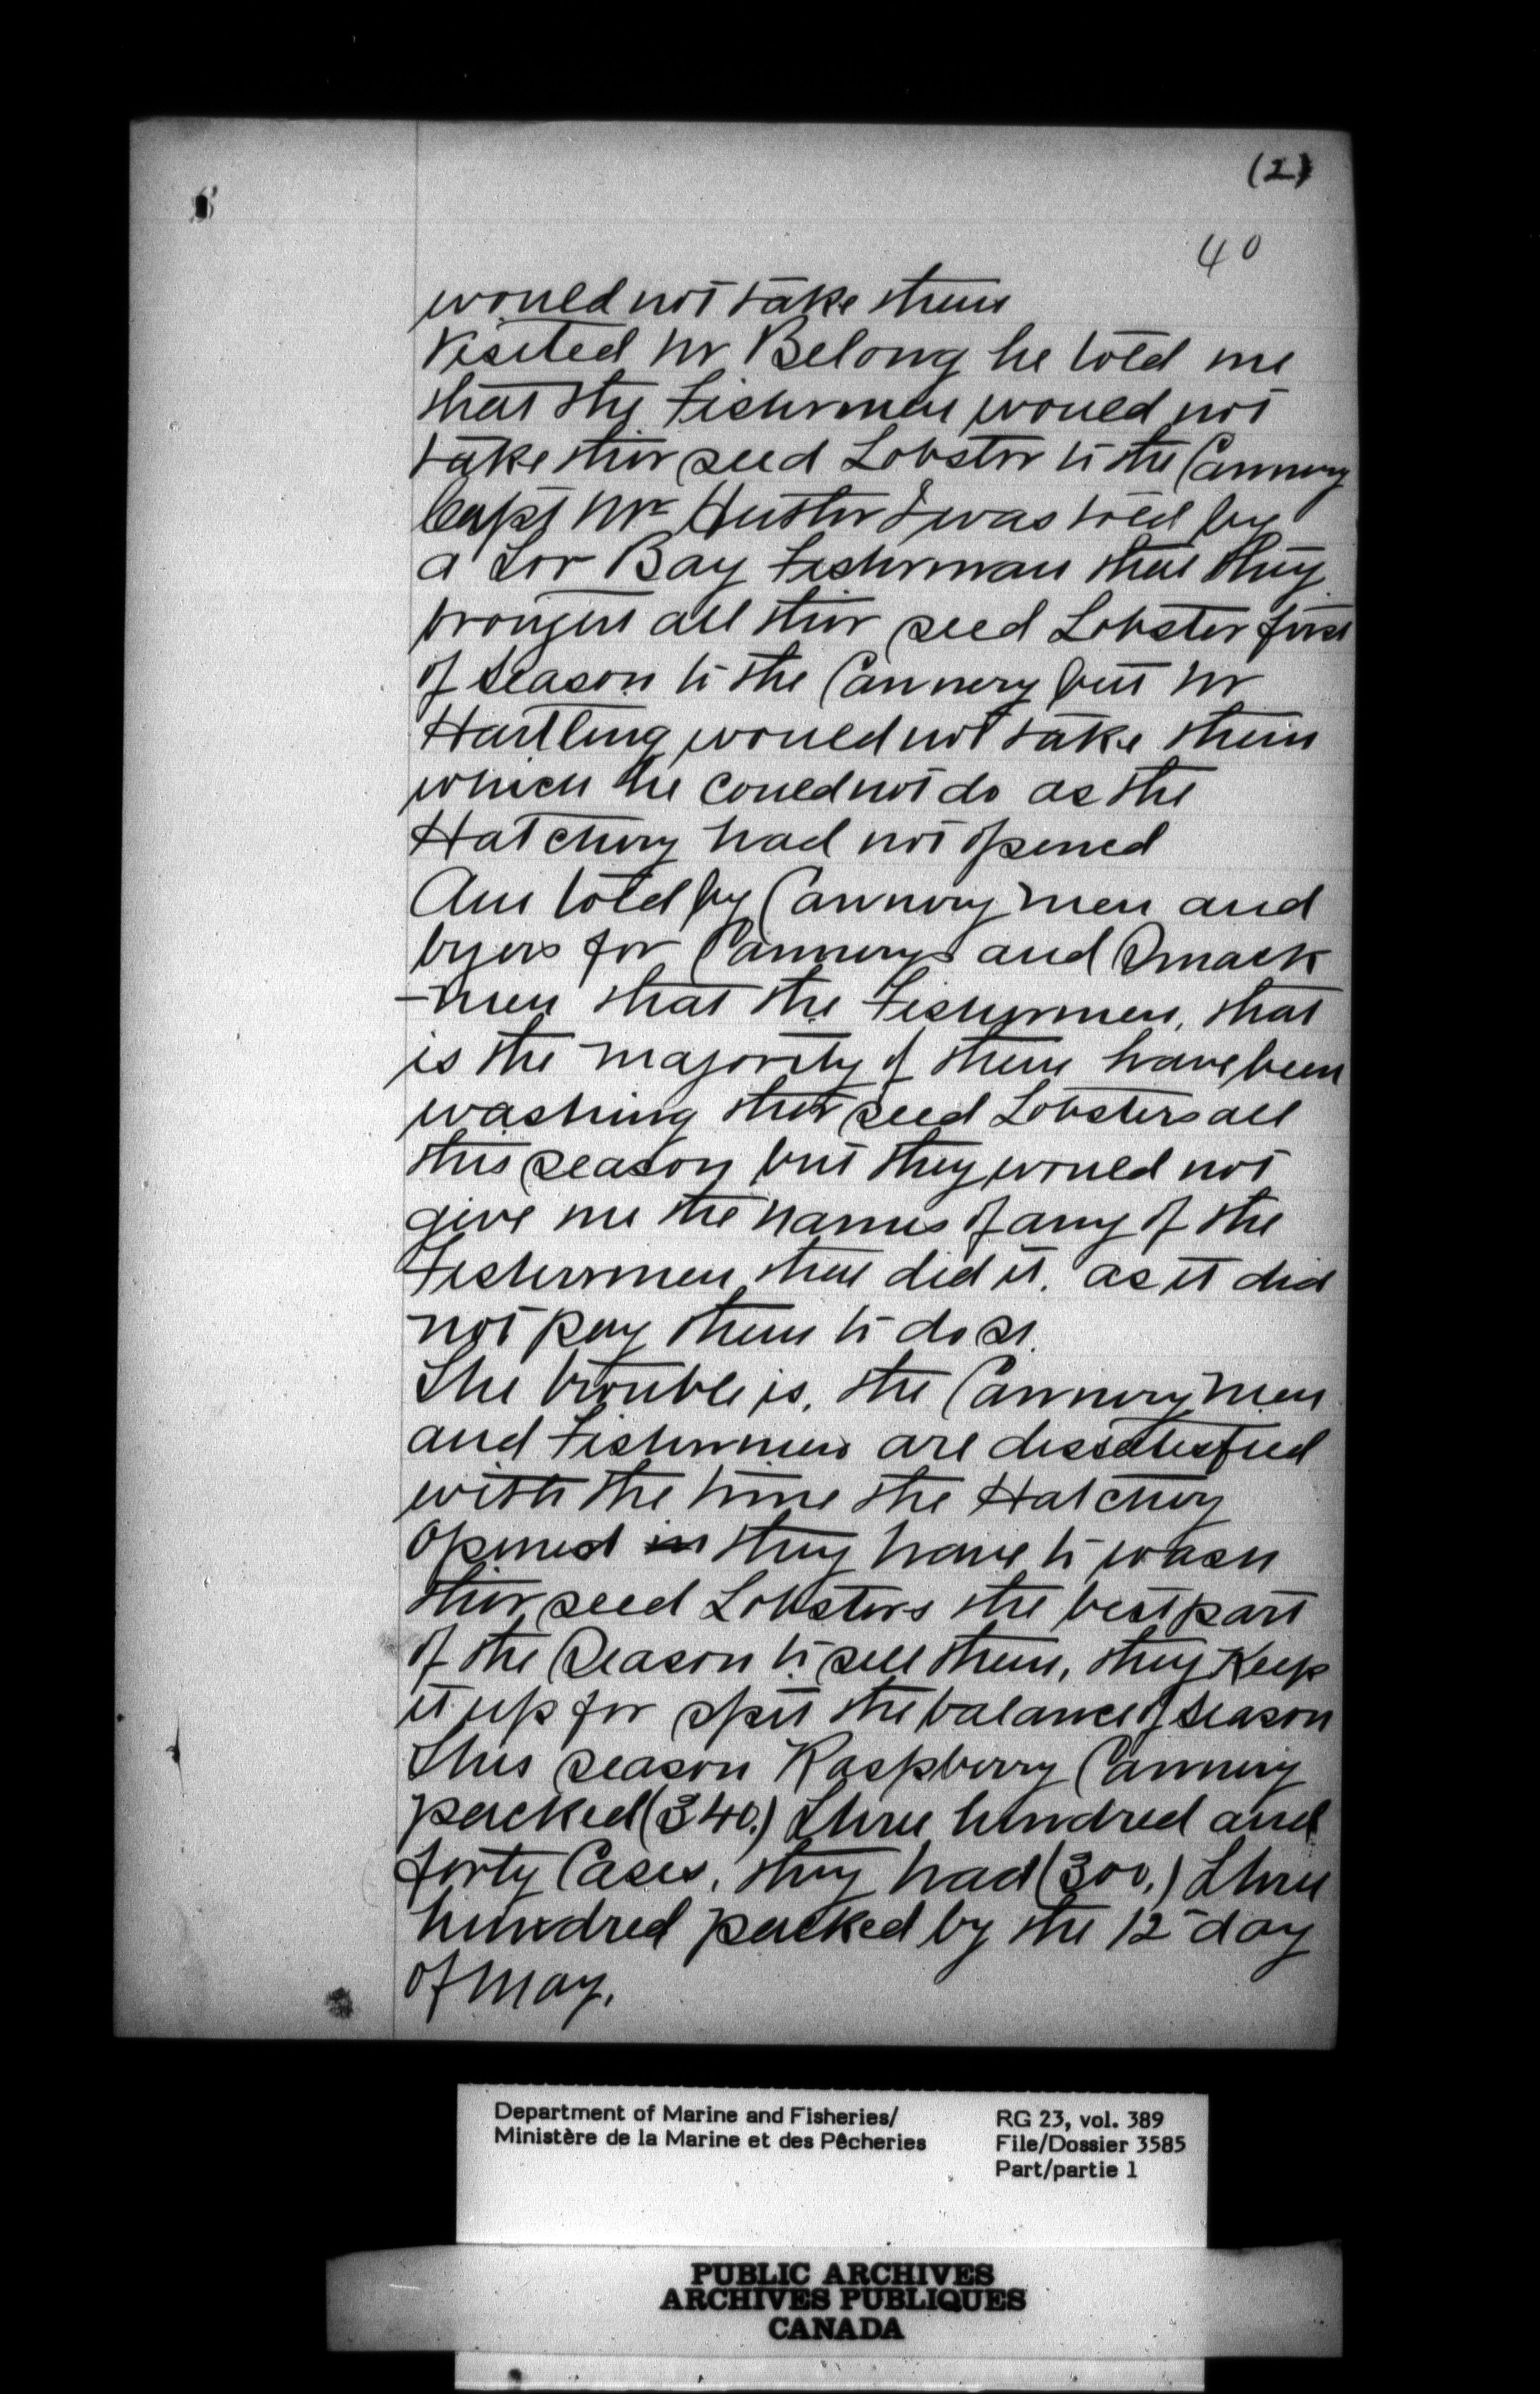 (2)
6
40
would not take them
Visited Mr Belong he told me
that the Fishermen would not
take thir seed Lobster to the Cannery
Capt Mr I was told by
a Tor Bay Fisherman that they
brought all thir seed Lobster first
of Season to the Cannery but Mr
Hartling would not take them
which he could not do as the
Hatchery had not opened
Am told by Cannery men and
byers for Cannerys and Smack
-men that the Fishermen, that
is the majority of them have been
washing thir seed Lobsters all
this season but they would not
give me the names of any of the
Fishermen that did it. as it did
not pay them to do so.
The trouble is, the Cannery men
and Fishermen are dissatisfied
with the time the Hatchery
opened in they have to wash
thir seed Lobsters the best part
of the Season to sell them, they Keep
it up for spit the balance of Season
This season Raspberry Cannery
packed (340.) Three hundred and
forty Cases, they had (300.) Three
hundred packed by the 12 day
of May.
Department of Marine and Fisheries/
Ministère de la Marine et des Pêcheries
RG 23, vol. 389
File/Dossier 3585
Part/partie 1
PUBLIC ARCHIVES
ARCHIVES PUBLIQUES
CANADA